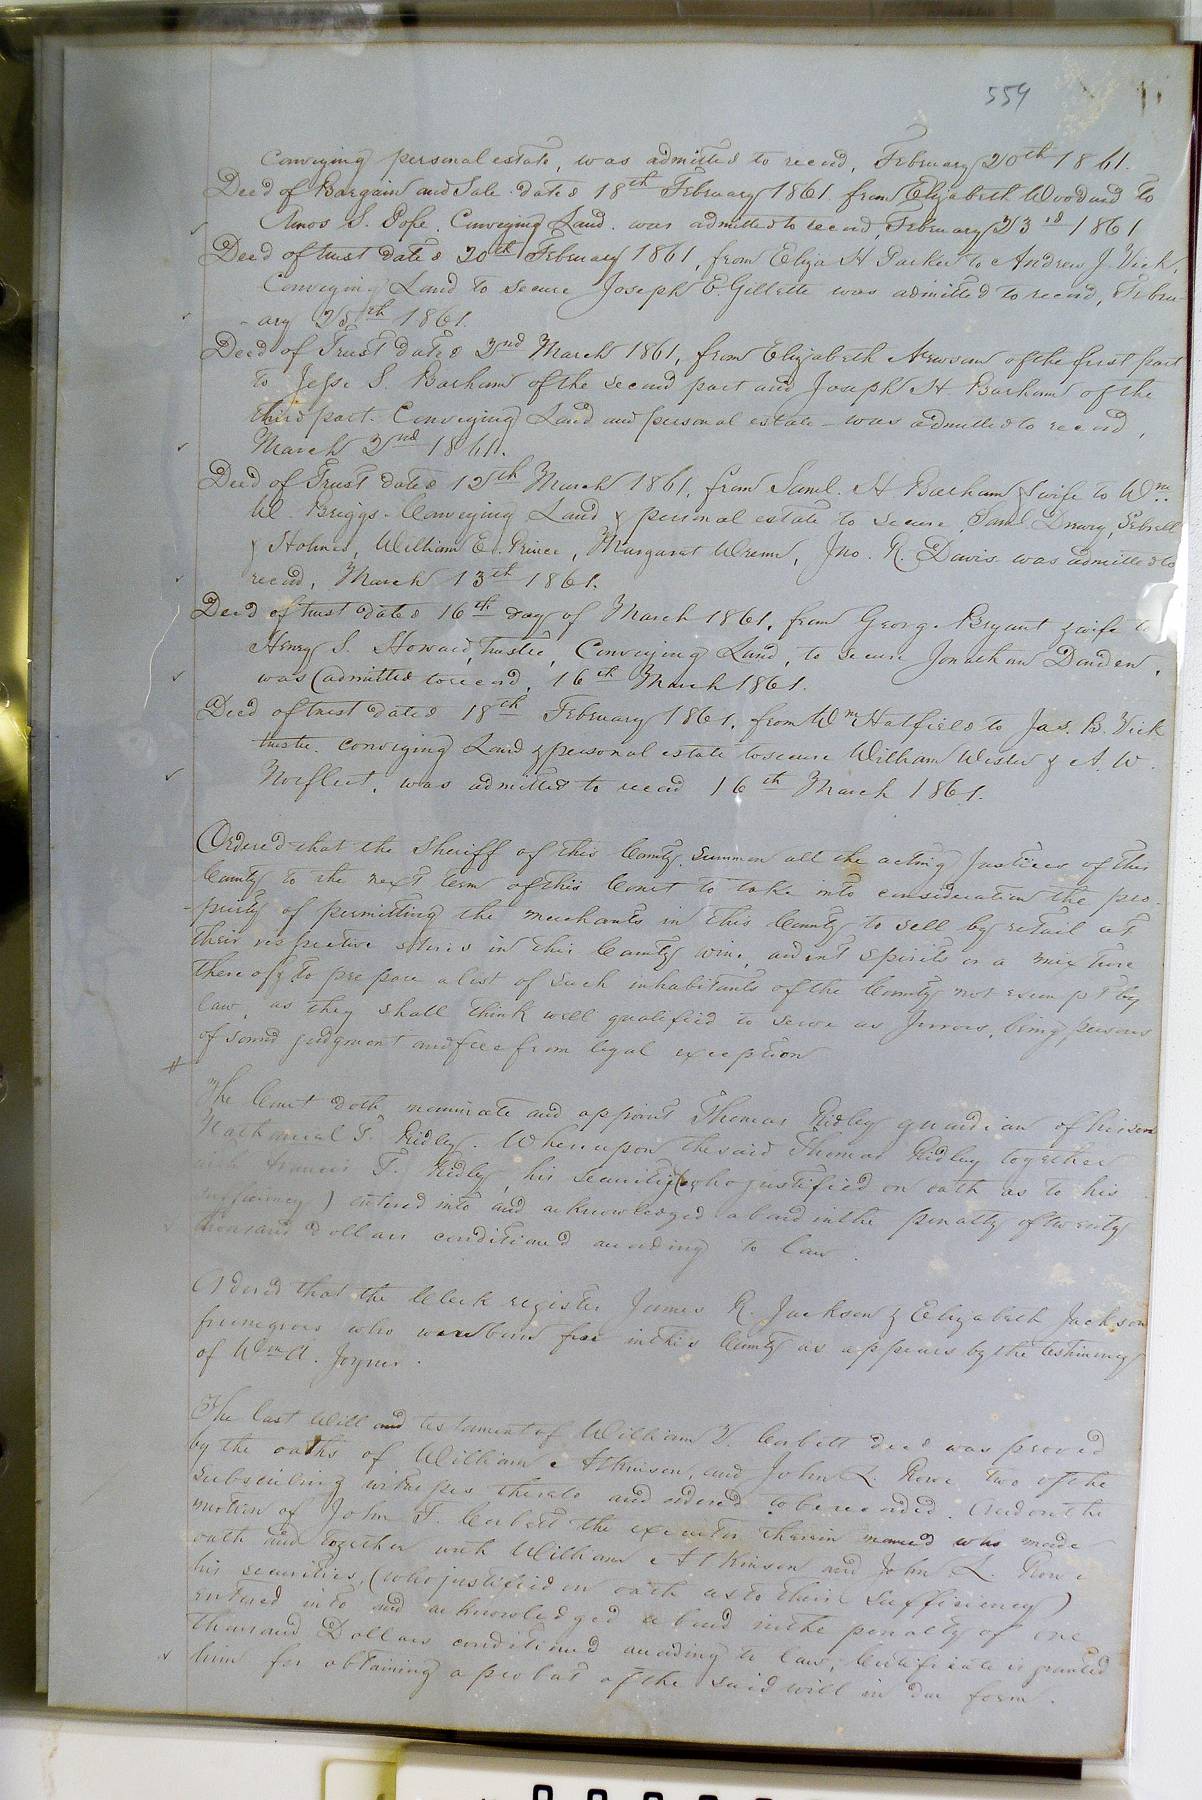 554
Conveying personal estate, was admitted to record, February 20th 1861.
Deed of Bargain and Sale dated 18th February 1861 from Elizabeth Woodard to
Amos S. Pope, Conveying Land, was admitted to record, February 23rd 1861
Deed of trust dated 20th February 1861, from Eliza H Parker to Andrew J. Vick,
Conveying Land to secure Joseph E. Gillette was admitted to record, Febru-
-ary 25th 1861.
Deed of Trust dated 2nd March 1861, from Elizabeth Newsom of the first part
to Jesse S. Barham of the second part and Joseph H. Barham of the
third part. Conveying Land and personal estate - was admitted to record,
March 2nd 1861.
Deed of Trust dated 12th March 1861, from Saml. H Barham & wife to Wm.
W. Briggs - Conveying Land & personal estate to secure Saml Drewry, Sebrell
& Holmes, William E. Prince, Margarat Wrenn, Jno. R. Davis was admitted to
record, March 13th 1861.
Deed of trust dated 16th day of March 1861, from George Bryant & wife to
Henry S. Howard, trustee, Conveying Land, to secure Jonathan Darden,
was admitted to record, 16th March 1861.
Deed of trust dated 18th February 1861, from Wm Hatfield to Jas. B. Vick
trustee. conveying Land & personal estate to secure William Wester & A. W.
Norfleet, was admitted to record 16th March 1861.
Ordered that the Sheriff of this County, summon all the acting Justices of this
County to the next term of this Court to take into consideration the pro-
-priety of permitting the merchants in this County to sell by retail at
their respective stores in this County wine, ardent spirits or a mixture
thereof & to prepare a list of such inhabitants of the County not exempt by
law, as they shall think well qualified to serve as Jurors, being persons
of sound judgment and free from legal exception
#
The Court doth nominate and appoint Thomas Ridley guardian of his son
Nathaniel T. Ridley. Whereupon the said Thomas Ridley together
with Francis T. Ridley, his security (who justified on oath as to his
sufficiency) entered into and acknowledged a bond in the penalty of twenty
thousand dollars conditioned according to law.
Ordered that the Clerk register James R. Jackson & Elizabeth Jackson
free negroes who were born free in this County as appears by the testimony
of Wm A. Joyner.
The last Will and testament of William Corbett decd was proved
by the oaths of William Atkinson, and John L. Rowe two of the
subscribing witnesses thereto and ordered to be recorded. And on the
motion of John T. Corbett the executor therein named who made
oath and together with William Atkinson and John L. Rowe
his securities, (who justified on oath as to their sufficiency)
entered into and acknowledged a bond in the penalty of one
thousand Dollars conditioned according to law, Certificate is granted
him for obtaining a probat of the said will in due form.